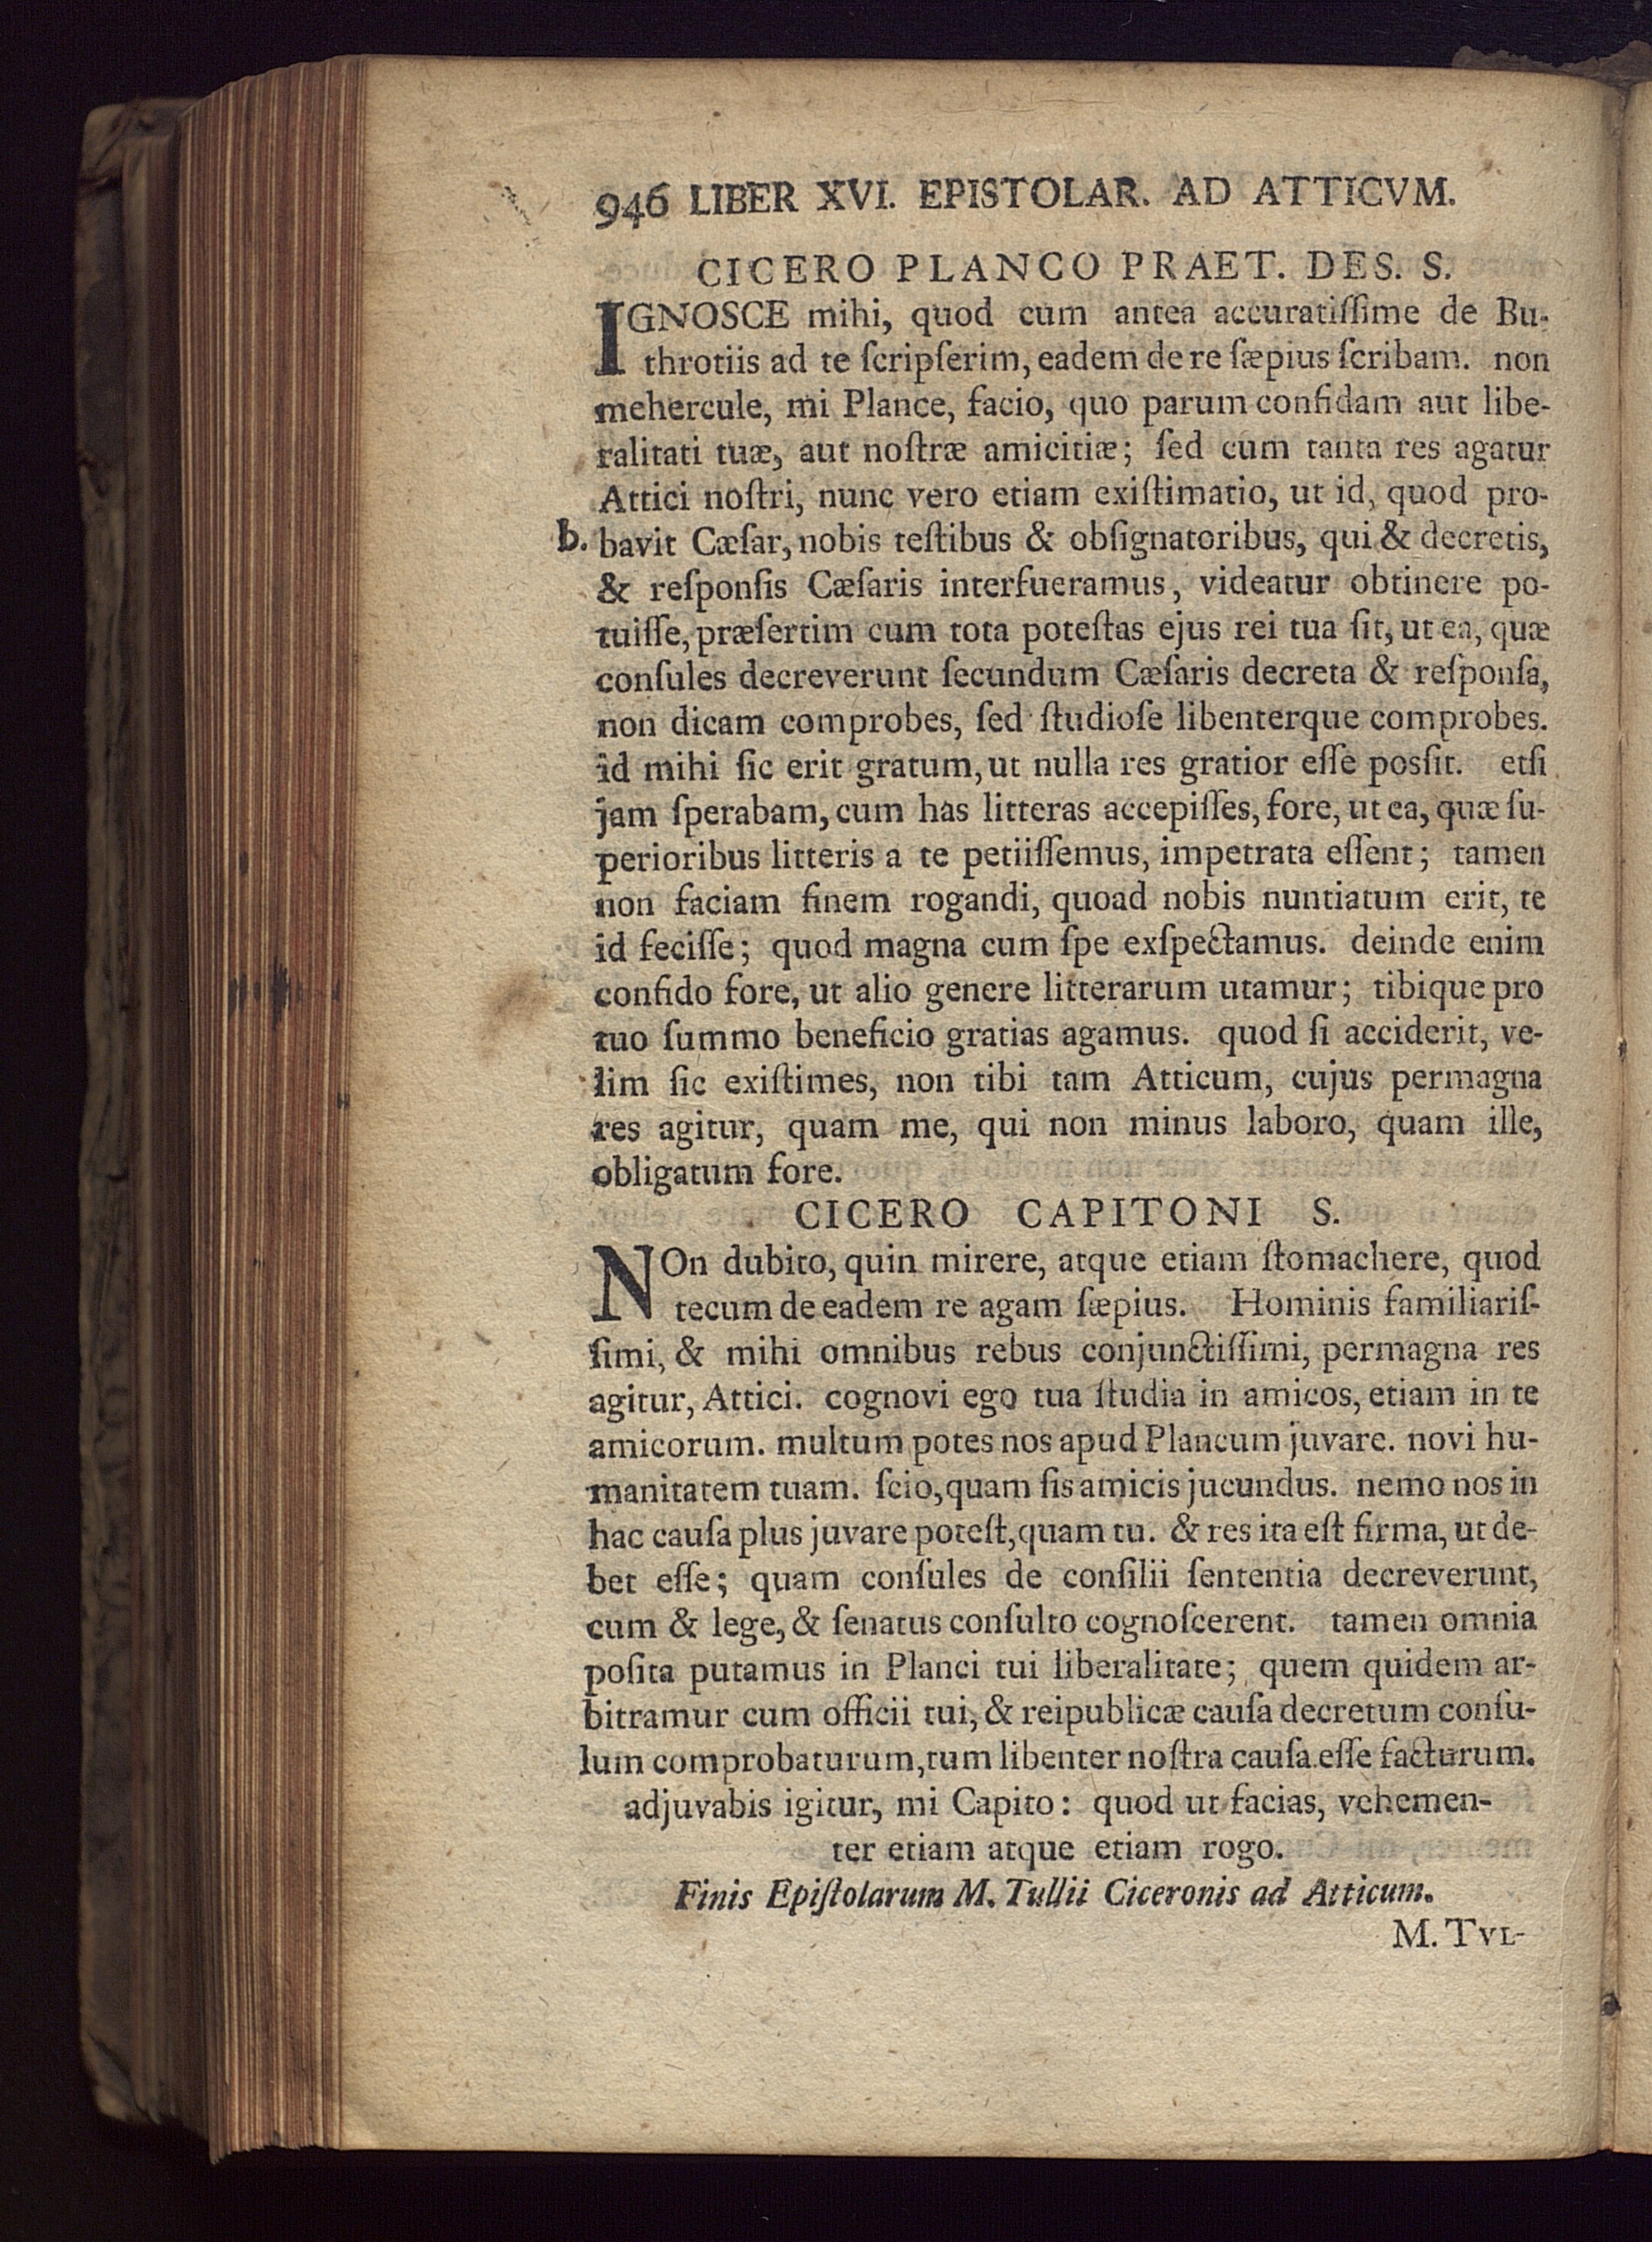 946 LIBER XVI. EPISTOLAR. AD ATTICVM.
CICERO PLANCO PRAET. DES. S.
IGNOSCE mihi, quod cum antea accuratiſſime de Bu-
throtiis ad te ſcripſerim, eadem de re ſæpius ſcribam. non
mehercule, mi Plance, facio, quo parum confidam aut libe-
ralitati tuæ, aut noſtræ amicitiæ; ſed cum tanta res agatur
Attici noſtri, nunc vero etiam exiſtimatio, ut id, quod pro-
b. bavit Cæſar, nobis teſtibus & obſignatoribus, qui & decretis,
& reſponſis Cæſaris interfueramus, videatur obtinere po-
tuiſſe, præſertim cum tota poteſtas ejus rei tua ſit, ut ea, quæ
conſules decreverunt ſecundum Cæſaris decreta & reſponſa,
non dicam comprobes, ſed ſtudioſe libenterque comprobes.
id mihi ſic erit gratum, ut nulla res gratior eſſe posſit. etſi
jam ſperabam, cum has litteras accepiſſes, fore, ut ea, quæ ſu-
perioribus litteris a te petiiſſemus, impetrata eſſent; tamen
non faciam finem rogandi, quoad nobis nuntiatum erit, te
id feciſſe; quod magna cum ſpe exſpectamus. deinde enim
confido fore, ut alio genere litterarum utamur; tibique pro
tuo ſummo beneficio gratias agamus. quod ſi acciderit, ve-
lim ſic exiſtimes, non tibi tam Atticum, cujus permagna
res agitur, quam me, qui non minus laboro, quam ille,
obligatum fore.
CICERO CAPITONI S.
NOn dubito, quin mirere, atque etiam ſtomachere, quod
tecum de eadem re agam ſæpius. Hominis familiariſ-
ſimi, & mihi omnibus rebus conjunctiſſimi, permagna res
agitur, Attici. cognovi ego tua ſtudia in amicos, etiam in te
amicorum. multum potes nos apud Plancum juvare. novi hu-
manitatem tuam. ſcio, quam ſis amicis jucundus. nemo nos in
hac cauſa plus juvare poteſt, quam tu. & res ita eſt firma, ut de-
bet eſſe; quam conſules de conſilii ſententia decreverunt,
cum & lege, & ſenatus conſulto cognoſcerent. tamen omnia
poſita putamus in Planci tui liberalitate; quem quidem ar-
bitramur cum officii tui, & reipublicæ cauſa decretum conſu-
lum comprobaturum, tum libenter noſtra cauſa eſſe facturum.
adjuvabis igitur, mi Capito: quod ut facias, vehemen-
ter etiam atque etiam rogo.
Finis Epiſtolarum M. Tullii Ciceronis ad Atticum.
M. TVL-